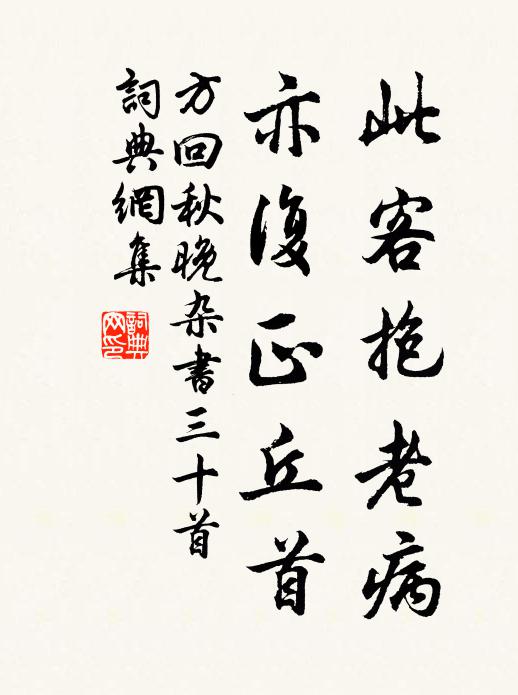 此客抱老病
亦復正丘首
方回秋晚杂書三十首
詞典網集
詞典網印